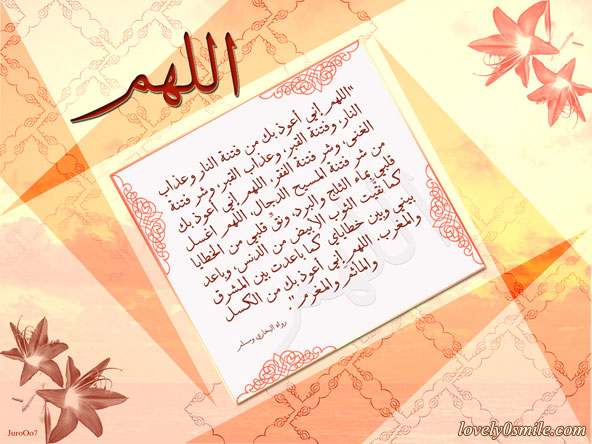 اللهم
"اللهم إني أعوذ بك من فتنة النار وعذاب
النار، وفتنة القبر، وعذاب القبر، وشر فتنة
الغنى، وشر فتنة الفقر، اللهم إني أعوذ بك
من شر فتنة المسيح الدجال، اللهم اغسل
قلبي بماء الثلج والبرد، ونقِّ قلبي من الخطايا
كما نقيت الثوب الأبيض من الدنس، وباعد
بيني وبين خطاياي كما باعدت بين المشرق
والمغرب. اللهم إني أعوذ بك من الكسل
والمأثم والمغرم".
رواه البخاري ومسلم
اللهم
JuroOo7
lovely0smile.com